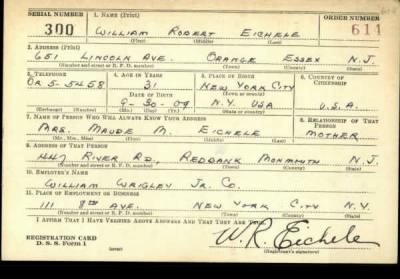 SERIAL NUMBER 1. NAME (Print) ORDER NUMBER
300 WILLIAM ROBERT EICHELE 611
(First) (Middle) (Last)
2. ADDRESS (Print)
651 LINCOLN AVE. ORANGE ESSEX N.J.
(Number and street or R. F. D. number) (Town) (County) (State)
3. TELEPHONE 4. AGE IN YEARS 5. PLACE OF BIRTH 6. COUNTRY OF CITIZENSHIP
OR 5-5458 31 NEW YORK CITY
DATE OF BIRTH (Town or county)
9-30-09 N.Y. USA U.S.A.
(Exchange) (Number) (Mo.) (Day) (Yr.) (State or country)
7. NAME OF PERSON WHO WILL ALWAYS KNOW YOUR ADDRESS 8. RELATIONSHIP OF THAT PERSON
MRS. MAUDE M. EICHELE MOTHER
(Mr., Mrs., Miss) (First) (Middle) (Last)
9. ADDRESS OF THAT PERSON
447 RIVER RD., REDBANK MONMOUTH N.J.
(Number and street or R. F. D. number) (Town) (County) (State)
10. EMPLOYER'S NAME
WILLIAM WRIGLEY JR. CO.
11. PLACE OF EMPLOYMENT OR BUSINESS
111 8TH AVE. NEW YORK CITY N.Y.
(Number and street or R. F. D. number) (Town) (County) (State)
I AFFIRM THAT I HAVE VERIFIED ABOVE ANSWERS AND THAT THEY ARE TRUE.
REGISTRATION CARD
D. S. S. Form 1
W.R. Eichele
(Registrant's signature)